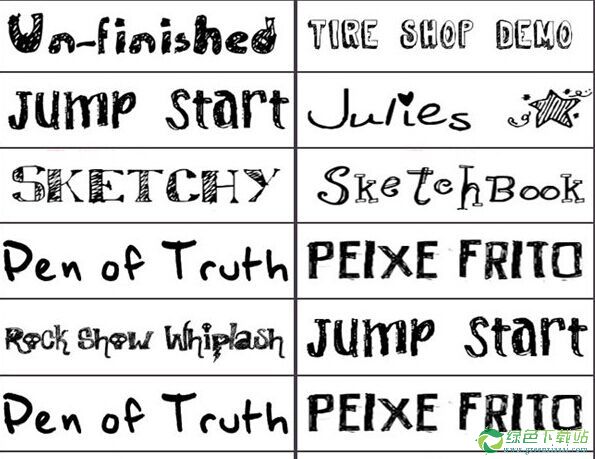 Un-finished TIRE SHOP DEMO
Jump Start Julies
SKETCHY SketchBook
Pen of Truth PEIXE FRITO
Rock Show Whiplash Jump Start
Pen of Truth PEIXE FRITO
绿色下载站